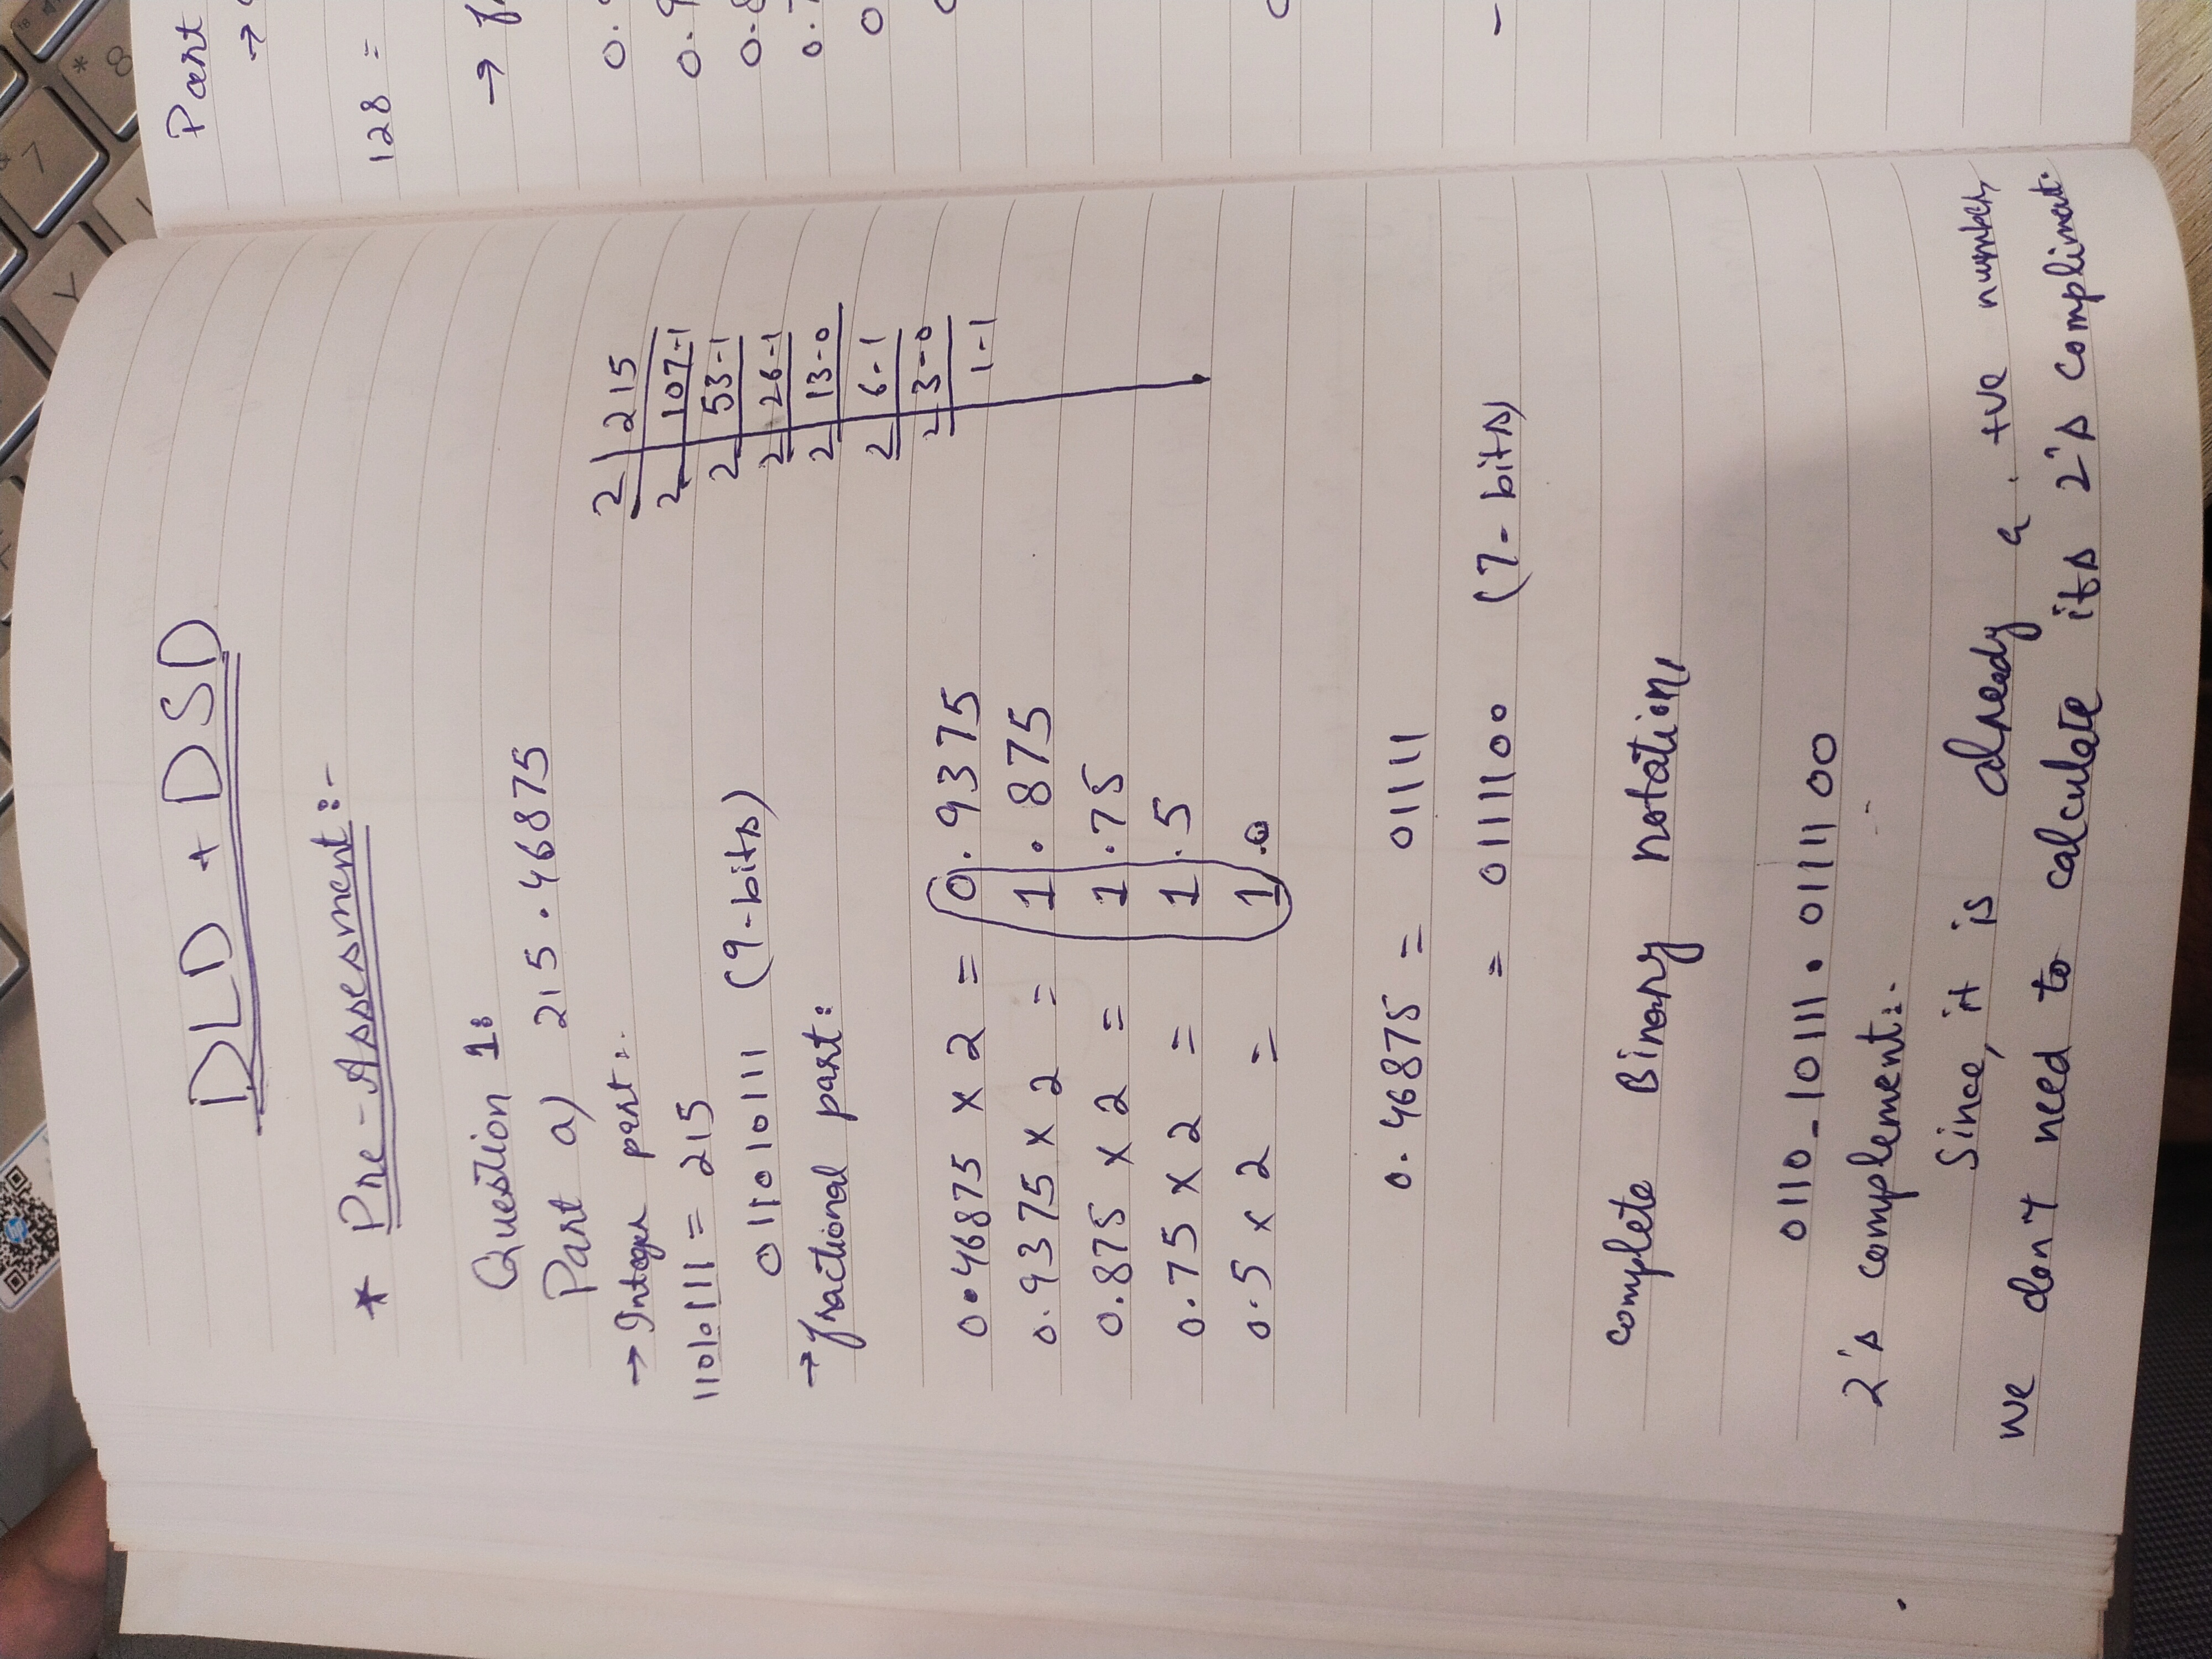 DLD + DSD
* Pre-Assesment:-
Question 1:
Part a) 215.46875
→ Integer part:.
11010111 = 215
011010111 (9-bits)
→ fractional part:
2 | 215
2 | 107-1
2 | 53-1
2 | 26-1
2 | 13-0
2 | 6-1
2 | 3-0
1-1
0.46875 x 2 = 0.9375
0.9375 x 2 = 1.875
0.875 x 2 = 1.75
0.75 x 2 = 1.5
0.5 x 2 = 1.0
0.46875 = 01111
= 0111100 (7-bits)
complete Binary notation,
0110_10111.0111100
2's complement:.
Since, it is already a +ve number,
we don't need to calculate its 2's compliment.
Part
→
128 =
→
0.
0.9
0.8
0.7
0
Y
7
*
8